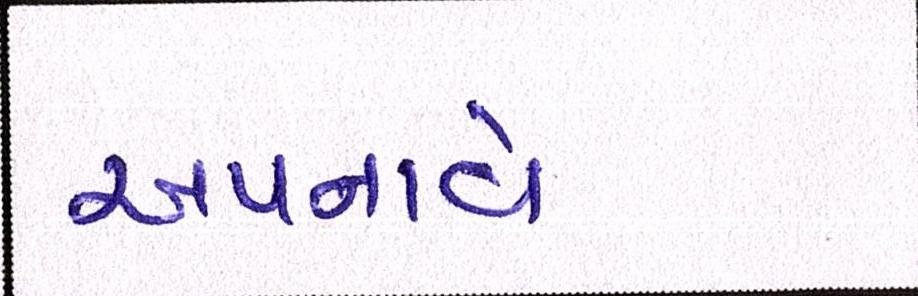 અપનાવે